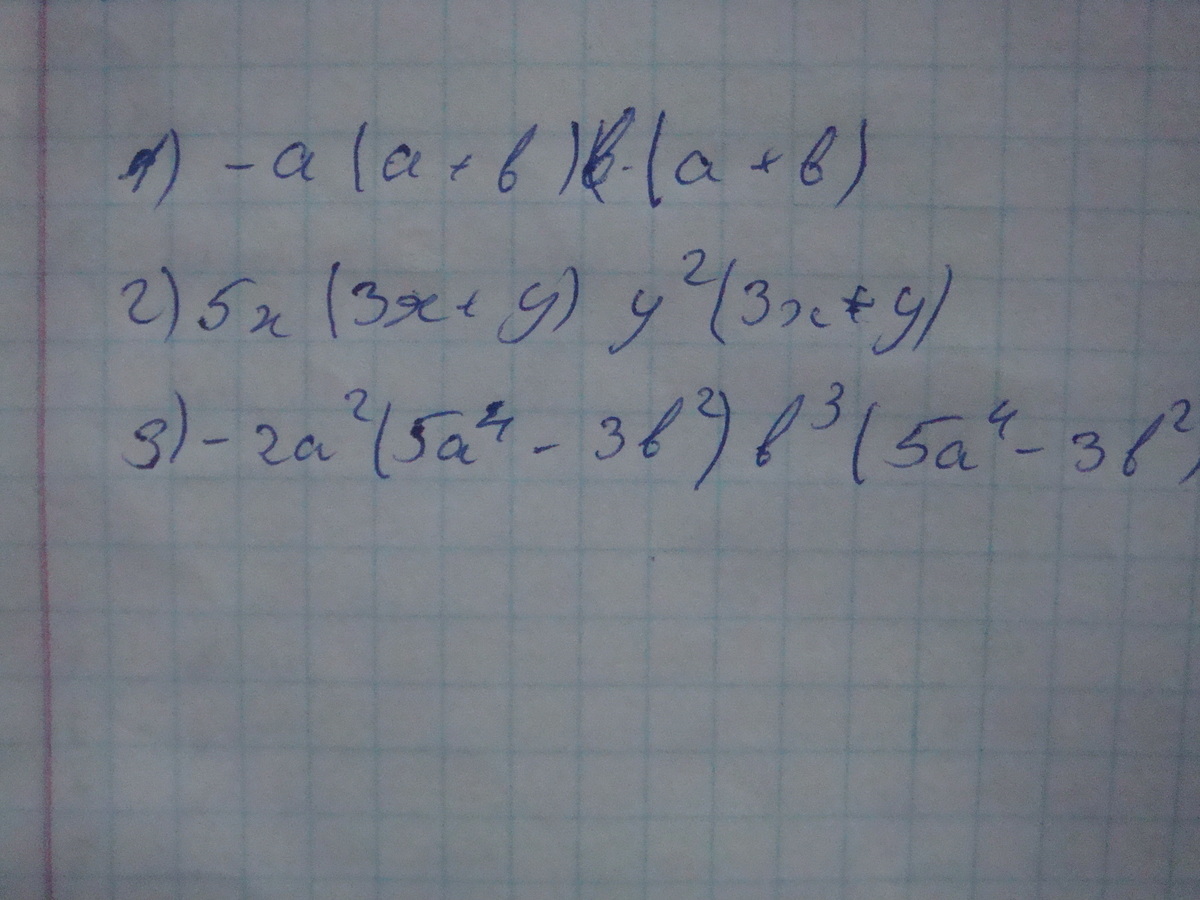 1) -a (a + в) в·(a + в)
2) 5x (3x + y) y²(3x + y)
3) -2a²(5a⁴ - 3в²) в³ (5a⁴ - 3в²)